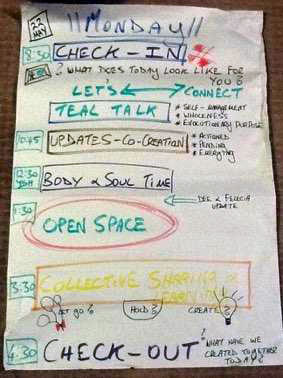 22 MAY
MONDAY
8:30 CHECK-IN
? WHAT DOES TODAY LOOK LIKE FOR YOU?
LET'S CONNECT
TEAL TALK
* SELF-MANAGEMENT
* WHOLENESS
* EVOLUTIONARY PURPOSE
10:45 UPDATES-CO-CREATION
* ACTIONED
* PENDING
* EMERGING
12:30 BODY & SOUL TIME
DEE & FELICIA UPDATE
1:30
OPEN SPACE
3:30 COLLECTIVE SHARING &
LEARNING
LET GO? HOLD? CREATE?
4:30 CHECK-OUT
? WHAT HAVE WE CREATED TOGETHER TODAY?